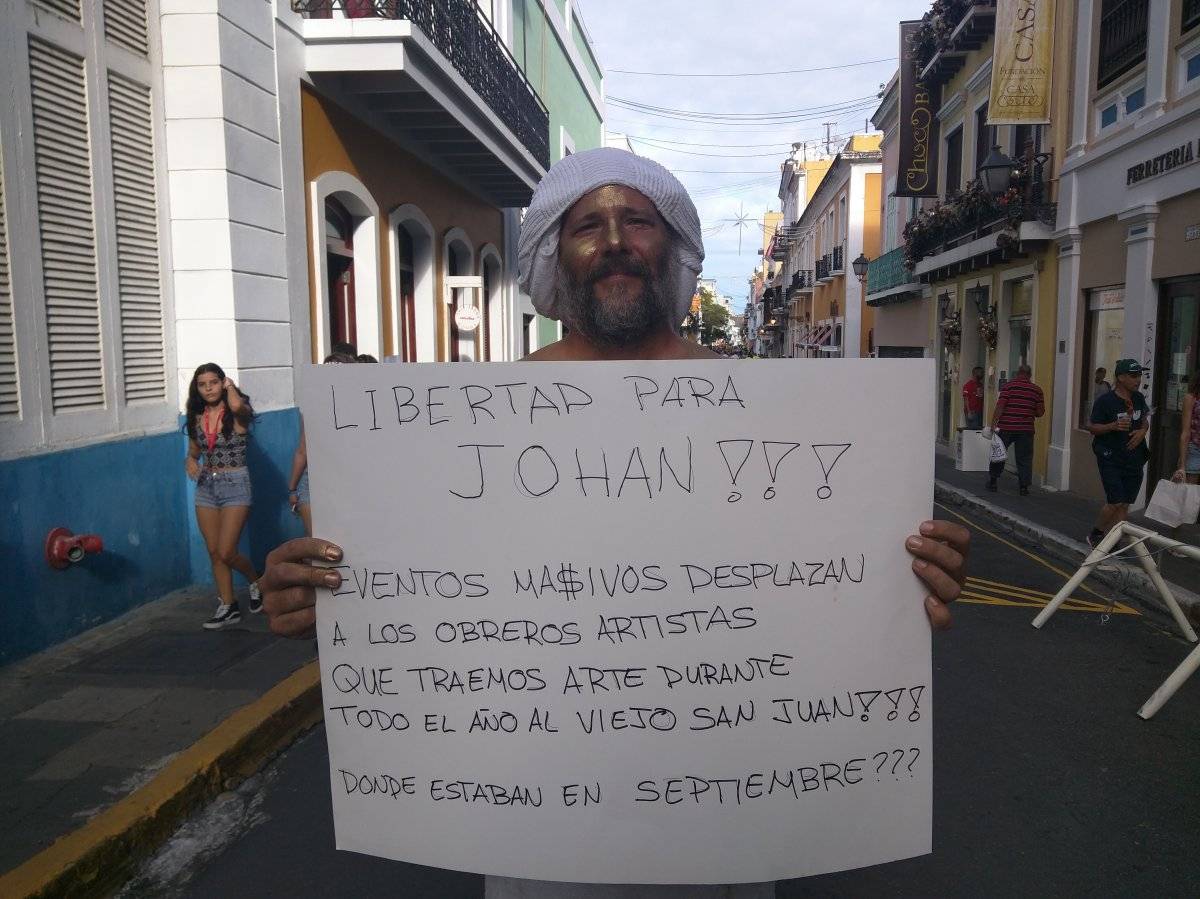 LIBERTAD PARA
JOHAN!!!
EVENTOS MA$IVOS DESPLAZAN
A LOS OBREROS ARTISTAS
QUE TRAEMOS ARTE DURANTE
TODO EL AÑO AL VIEJO SAN JUAN!!!
DONDE ESTABAN EN SEPTIEMBRE???
ChocoBa
CASA
FUNDACIÓN
CASA
FERRETERIA